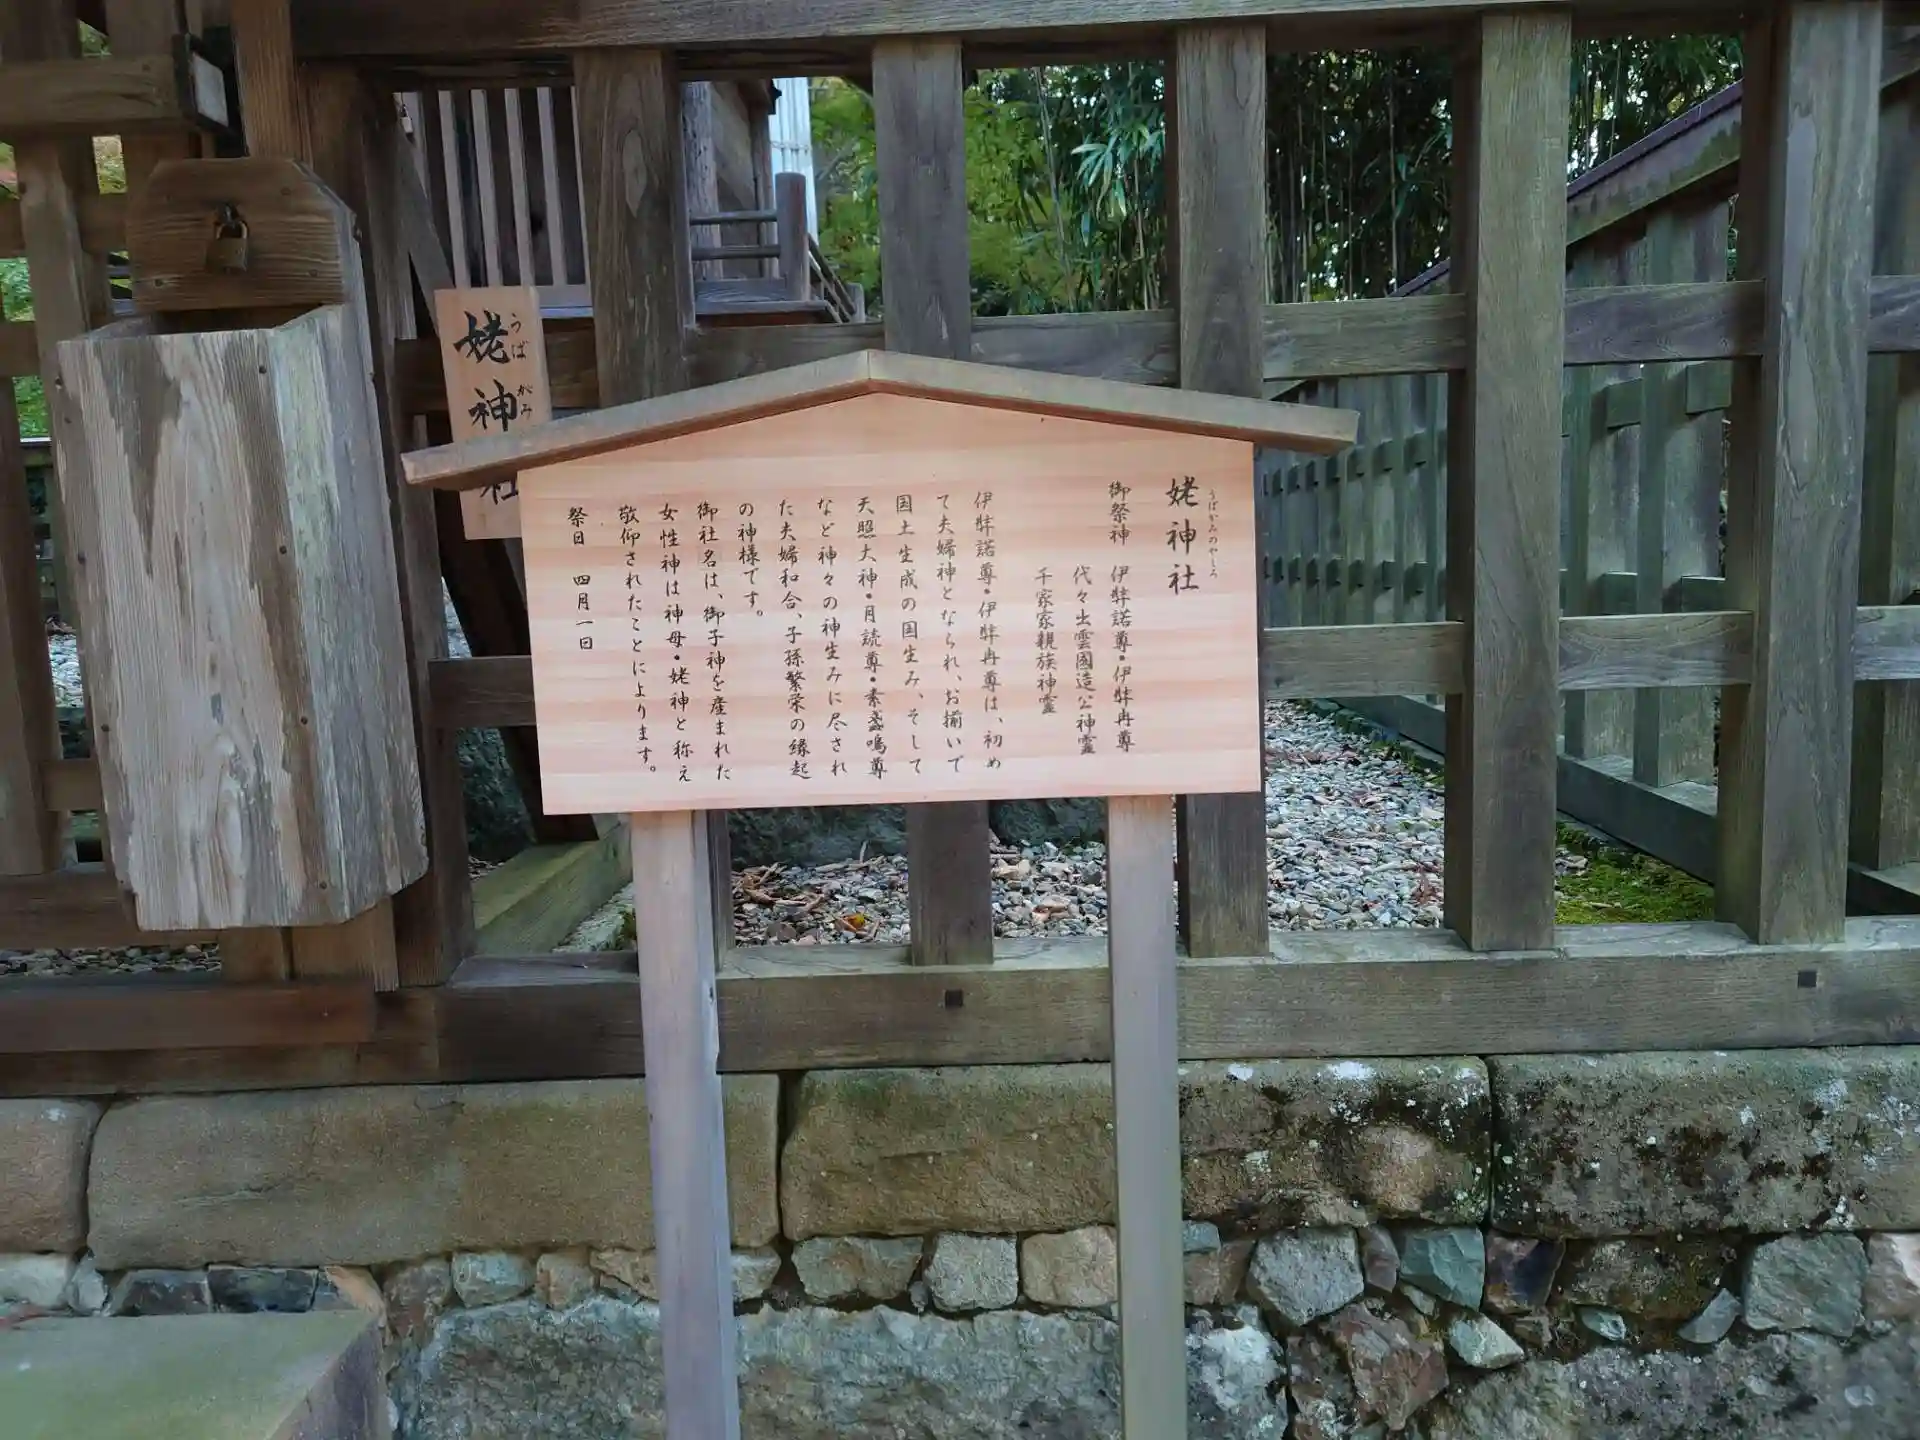 姥神社
うばがみ
姥神社
うばがみのやしろ
御祭神 伊弉諾尊・伊弉冉尊
代々出雲國造公神霊
千家家親族神霊
伊弉諾尊・伊弉冉尊は、初め
て夫婦神となられ、お揃いで
国土生成の国生み、そして
天照大神・月読尊・素盞嗚尊
など神々の神生みに尽され
た夫婦和合、子孫繁栄の縁起
の神様です。
御社名は、御子神を産まれた
女性神は神母・姥神と称え
敬仰されたことによります。
祭日 四月一日